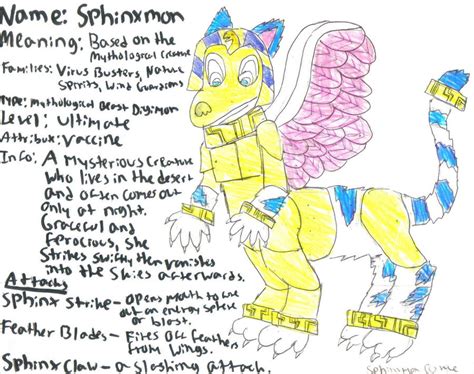 Name: Sphinxmon
Meaning: Based on the
Mythological Creature
Families: Virus Busters, Nature
Spirits, Wind Guardians
Type: Mythological Beast Digimon
Level: Ultimate
Attribute: Vaccine
Info: A Mysterious Creature
who lives in the desert
and often comes out
only at night.
Graceful and
ferocious, she
strikes swiftly then vanishes
into the skies afterwards.
Attacks
Sphinx Strike- opens mouth to
out an energy sphere
or blast.
Feather Blades- Fires off feathers
from wings.
Sphinx Claw- a slashing attack.
Sphinxmon